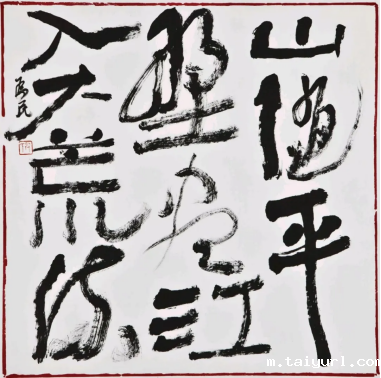 山随平
野尽江
入大荒流
m.taiyuurl.com